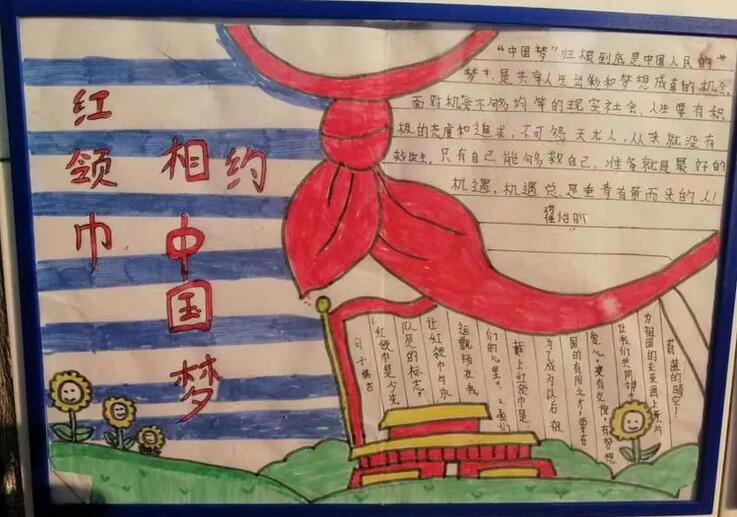 红领巾
相约
中国梦
“中国梦”归根到底是中国人民的
梦，是共享人生出彩和梦想成真的机会，
面对机会不够均等的现实社会，人生要有积
极的态度和追求，不可怨天尤人，从来就没有
救世主，只有自己能够救自己，准备就是最好的
机遇，机遇总是垂青有备而来的人！
蔚蓝的晴空！
为祖国的未来画上
让我们共同
爱心，拥有文明，有梦想
国的有用之才，要有
为了成为以后祖
戴上红领巾是
们的心里。
运飘扬在我
让红领巾永
队员的标志，
红领巾是少先